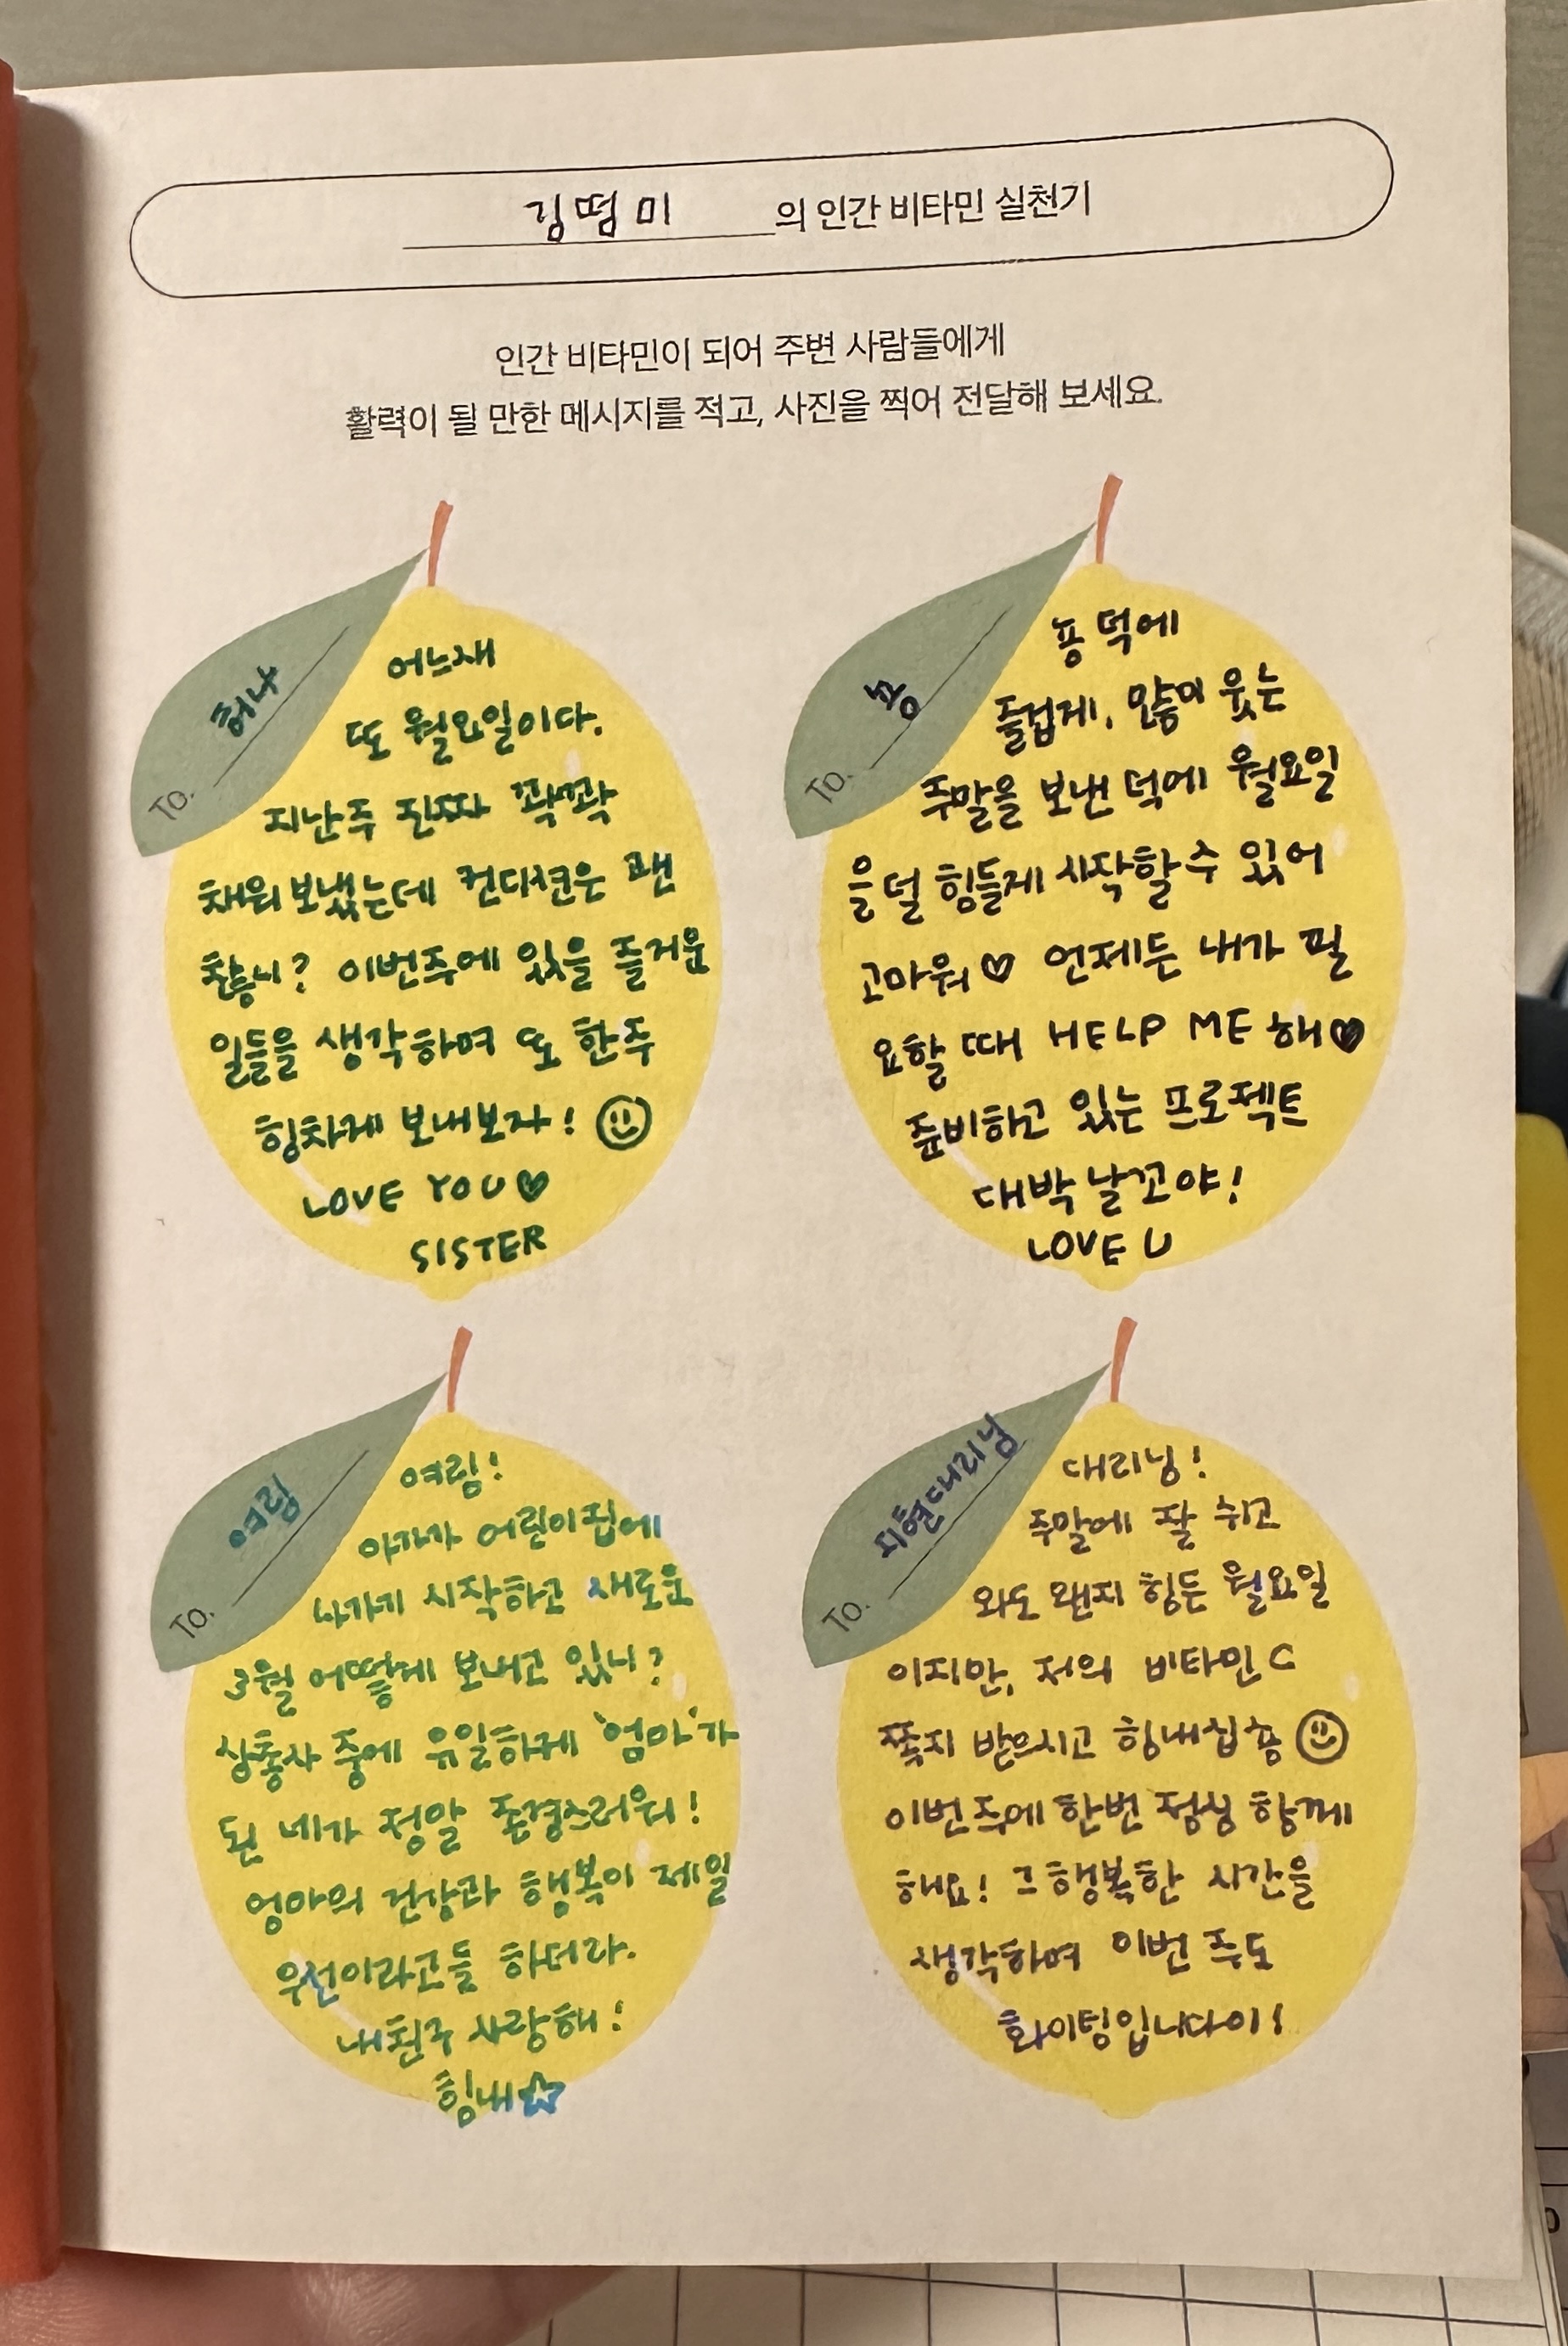 김떰미 의 인간 비타민 실천기
인간 비타민이 되어 주변 사람들에게
활력이 될 만한 메시지를 적고, 사진을 찍어 전달해 보세요.
To. 허나
어느새
또 월요일이다.
지난주 진짜 꽉꽉
채워 보냈는데 컨디션은 괜
찮니? 이번주에 있을 즐거운
일들을 생각하며 또 한주
힘차게 보내보자!
LOVE YOU♥
SISTER
To. 쑝
쑝 덕에
즐겁게, 많이 웃는
주말을 보낸 덕에 월요일
을 덜 힘들게 시작할 수 있어
고마워♡ 언제든 내가 필
요할 때 HELP ME 해♥
준비하고 있는 프로젝트
대박 날꼬야!
LOVE U
To. 여림
여림!
아가가 어린이집에
나가기 시작하고 새로운
3월 어떻게 보내고 있니?
상총사 중에 유일하게 '엄마'가
된 네가 정말 존경스러워!
엄마의 건강과 행복이 제일
우선이라고들 하더라.
내친구 사랑해!
힘내☆
To. 지현대리님
대리님!
주말에 잘 쉬고
와도 왠지 힘든 월요일
이지만, 저의 비타민C
쪽지 받으시고 힘내십숑
이번 주에 한번 점심 함께
해요! 그 행복한 시간을
생각하며 이번 주도
화이팅입니다아!